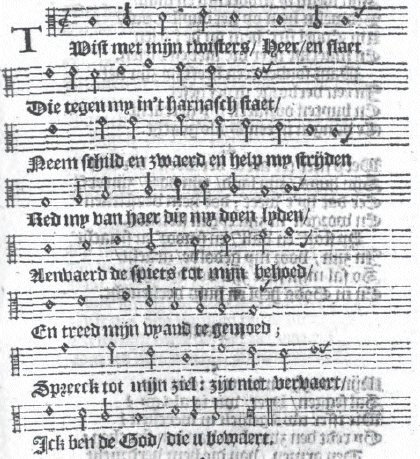 Twist met mijn twisters / Heer / en slaet
Die tegen my in't harnasch staet /
Neem schild en zwaerd en help my strijden
Red my van haer die my doen lyden /
Aenvaerd de spiets tot mijn behoed /
En treed mijn vyand te gemoed ;
Spreeck tot mijn ziel : zijt niet vervaert /
Ick ben de God / die u bewaert.